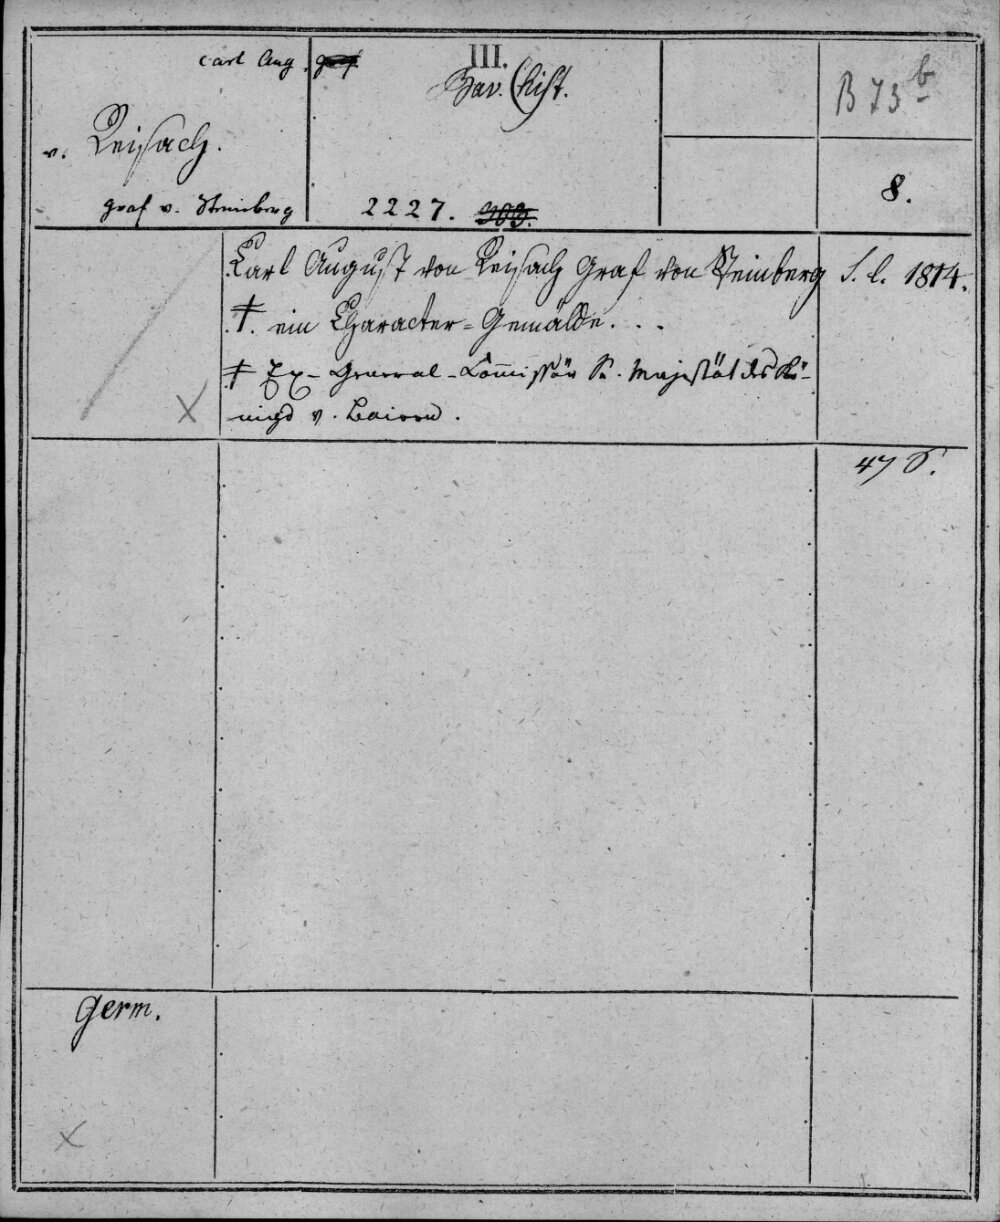 Carl Aug. Graf
III.
Bav. (hist.
B 73 b
v. Reisach.
8.
Graf v. Steinberg
2227. 303.
Karl August von Reisach Graf von Steinberg S. l. 1814.
‡. ein Character-Gemälde. . .
‡ Ex-General-Commissär Sr. Majestät des Kö-
nigs v. Baiern.
47 S.
Germ.